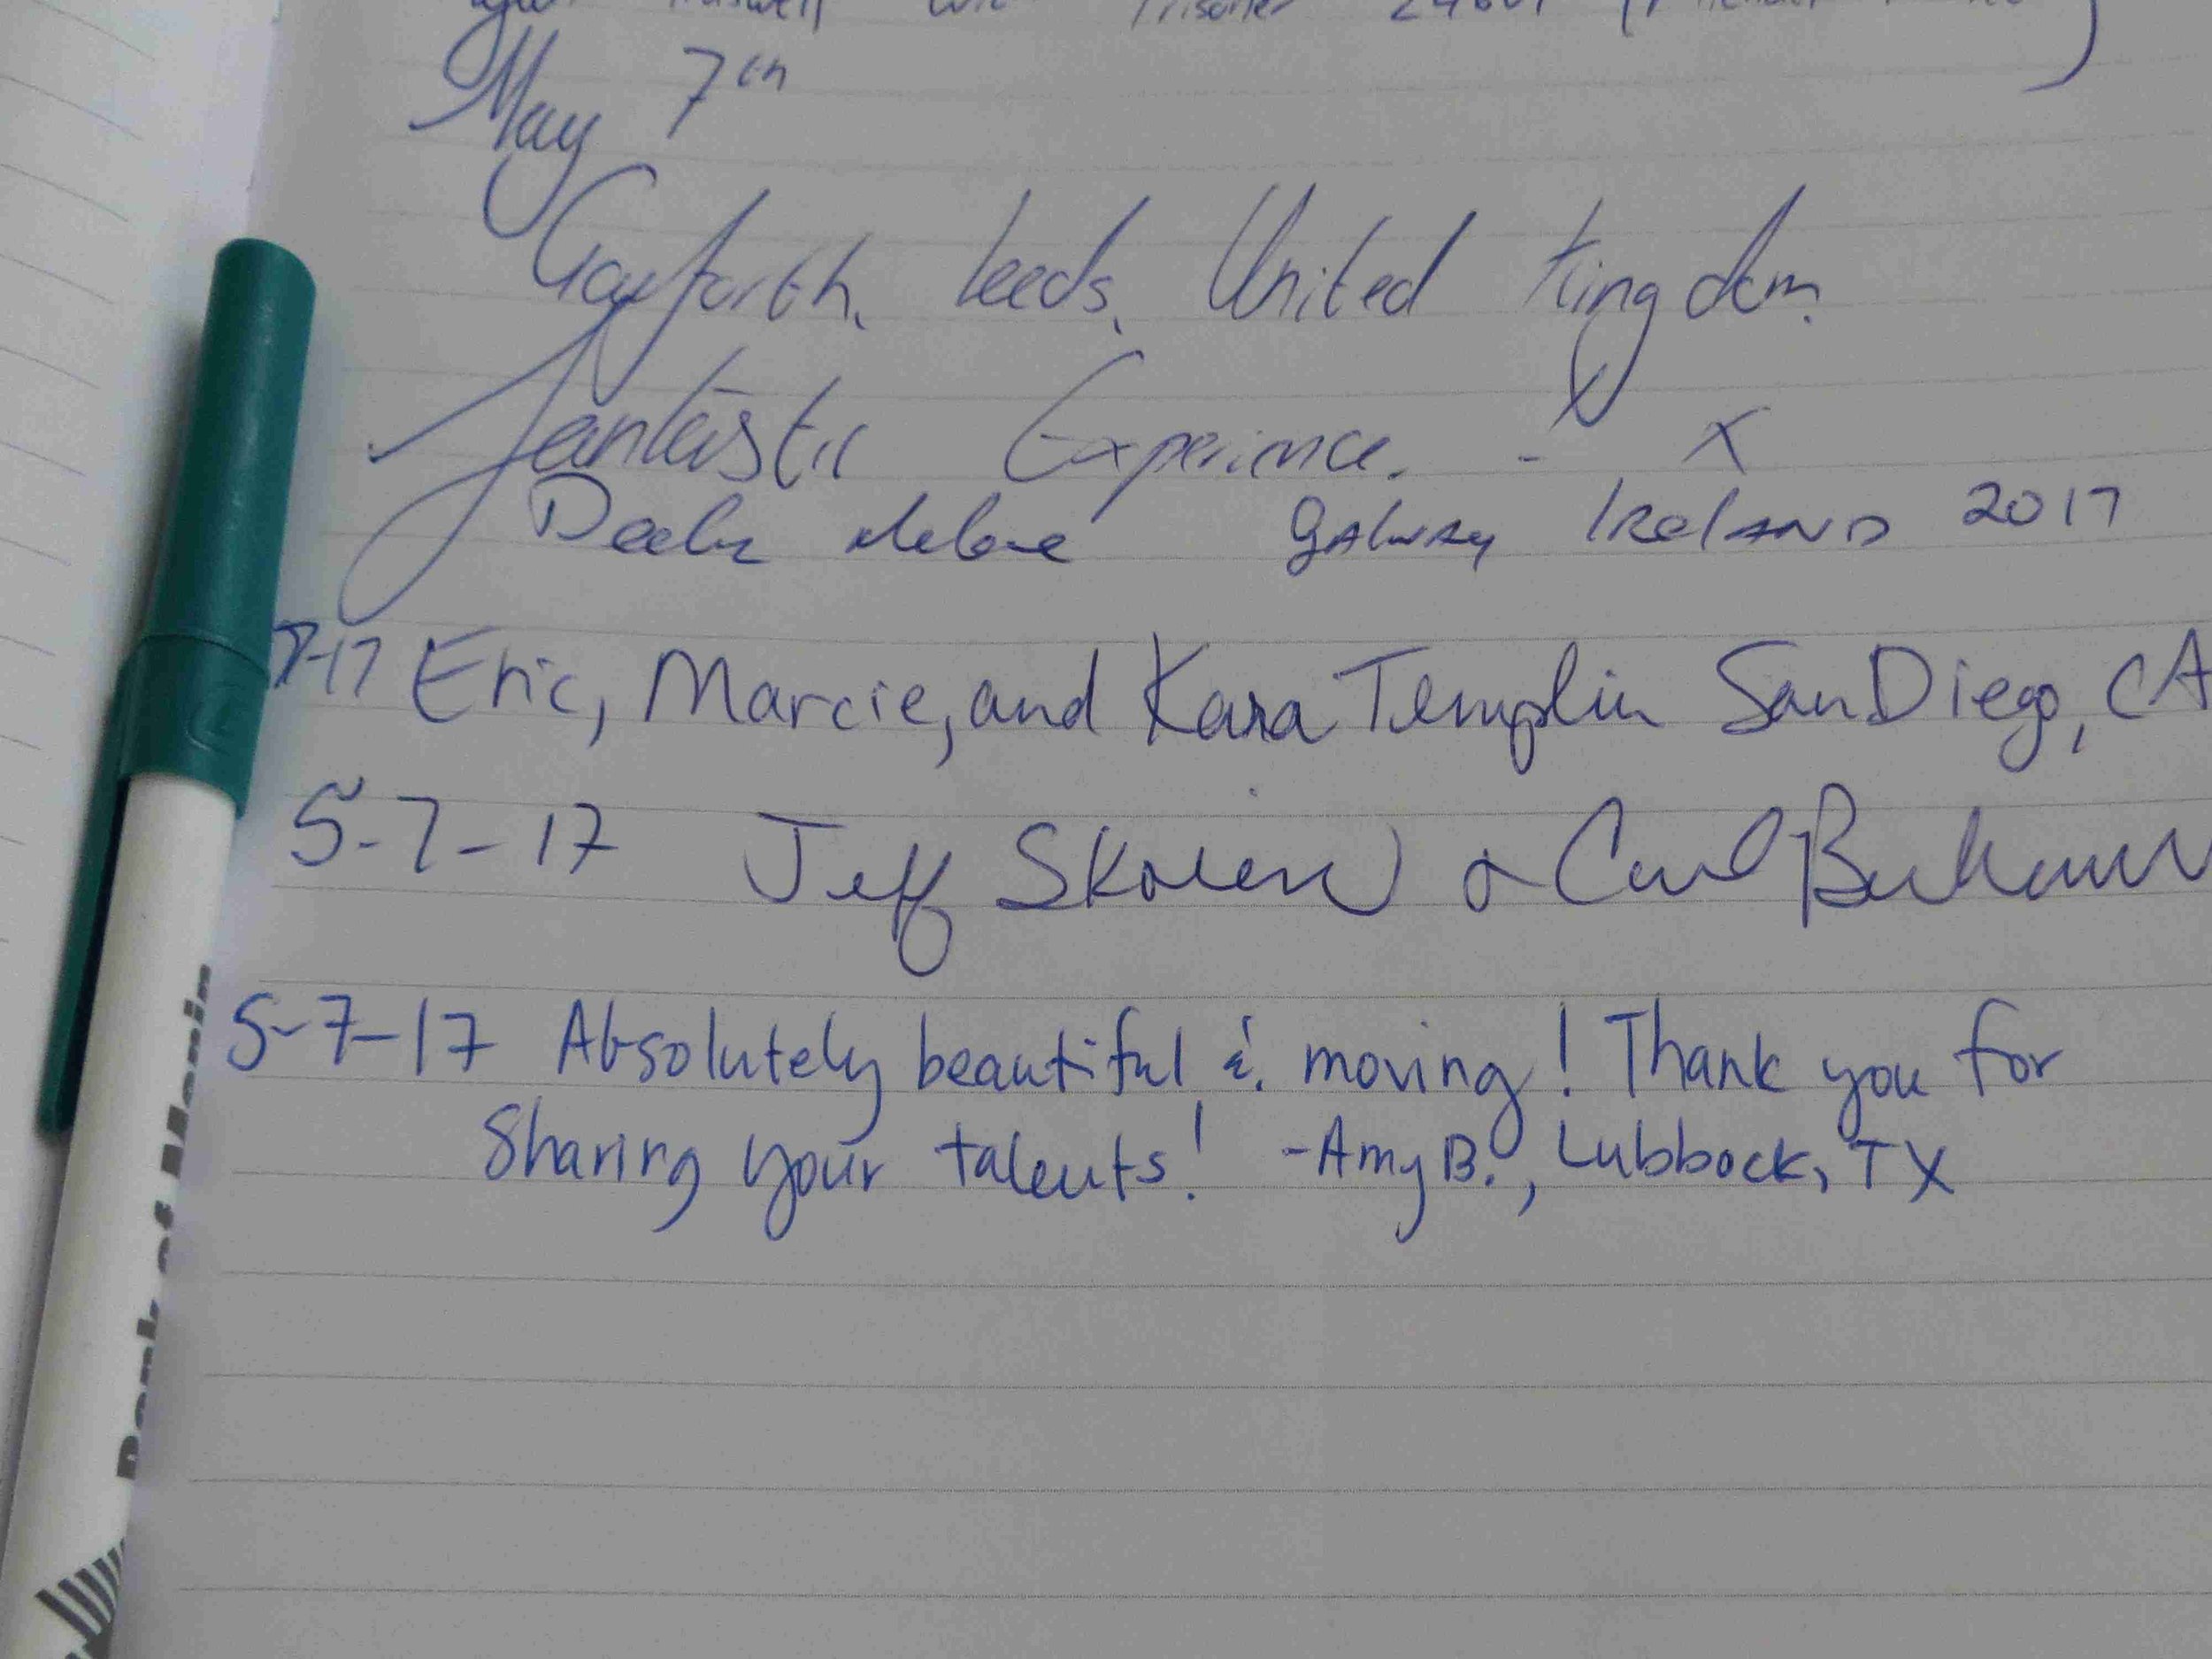 Prisoner 24601
May 7th
Garforth, Leeds, United Kingdom.
Fantastic Experience. - X
Galway IRELAND 2017
7-17 Eric, Marcie, and Kara Templin San Diego, CA
5-7-17 Jeff &
5-7-17 Absolutely beautiful & moving! Thank you for
Sharing your talents! -Amy B., Lubbock, TX
Bank of